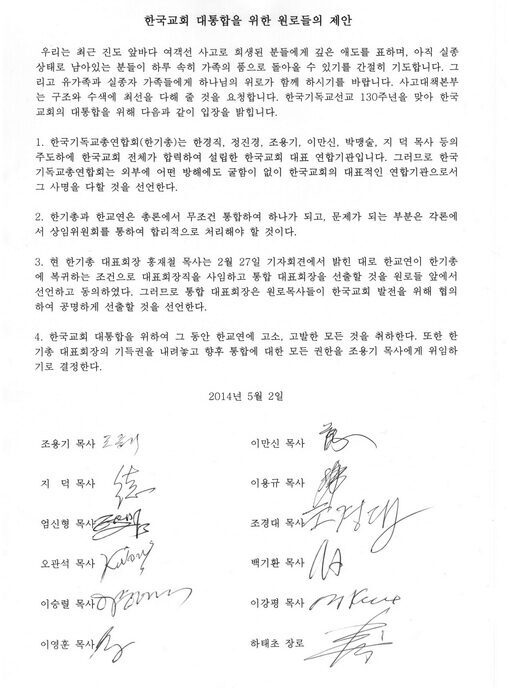 한국교회 대통합을 위한 원로들의 제안
우리는 최근 진도 앞바다 여객선 사고로 희생된 분들에게 깊은 애도를 표하며, 아직 실종
상태로 남아있는 분들이 하루 속히 가족의 품으로 돌아올 수 있기를 간절히 기도합니다. 그
리고 유가족과 실종자 가족들에게 하나님의 위로가 함께 하시기를 바랍니다. 사고대책본부
는 구조와 수색에 최선을 다해 줄 것을 요청합니다. 한국기독교선교 130주년을 맞아 한국
교회의 대통합을 위해 다음과 같이 입장을 밝힙니다.
1. 한국기독교총연합회(한기총)는 한경직, 정진경, 조용기, 이만신, 박맹술, 지 덕 목사 등의
주도하에 한국교회 전체가 합력하여 설립한 한국교회 대표 연합기관입니다. 그러므로 한국
기독교총연합회는 외부에 어떤 방해에도 굴함이 없이 한국교회의 대표적인 연합기관으로서
그 사명을 다할 것을 선언한다.
2. 한기총과 한교연은 총론에서 무조건 통합하여 하나가 되고, 문제가 되는 부분은 각론에
서 상임위원회를 통하여 합리적으로 처리해야 할 것이다.
3. 현 한기총 대표회장 홍재철 목사는 2월 27일 기자회견에서 밝힌 대로 한교연이 한기총
에 복귀하는 조건으로 대표회장직을 사임하고 통합 대표회장을 선출할 것을 원로들 앞에서
선언하고 동의하였다. 그러므로 통합 대표회장은 원로목사들이 한국교회 발전을 위해 협의
하여 공명하게 선출할 것을 선언한다.
4. 한국교회 대통합을 위하여 그 동안 한교연에 고소, 고발한 모든 것을 취하한다. 또한 한
기총 대표회장의 기득권을 내려놓고 향후 통합에 대한 모든 권한을 조용기 목사에게 위임하
기로 결정한다.
2014년 5월 2일
조용기 목사 이만신 목사
지 덕 목사 이용규 목사
엄신형 목사 조경대 목사 조경대
오관석 목사 백기환 목사
이승렬 목사 이강평 목사
이영훈 목사 하태초 장로